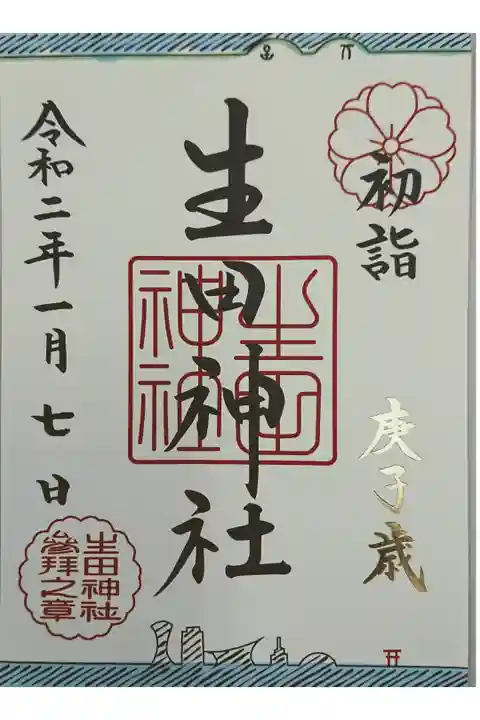 初詣
庚子歳
生田神社
生田神社
令和二年一月七日
生田神社
參拜之章